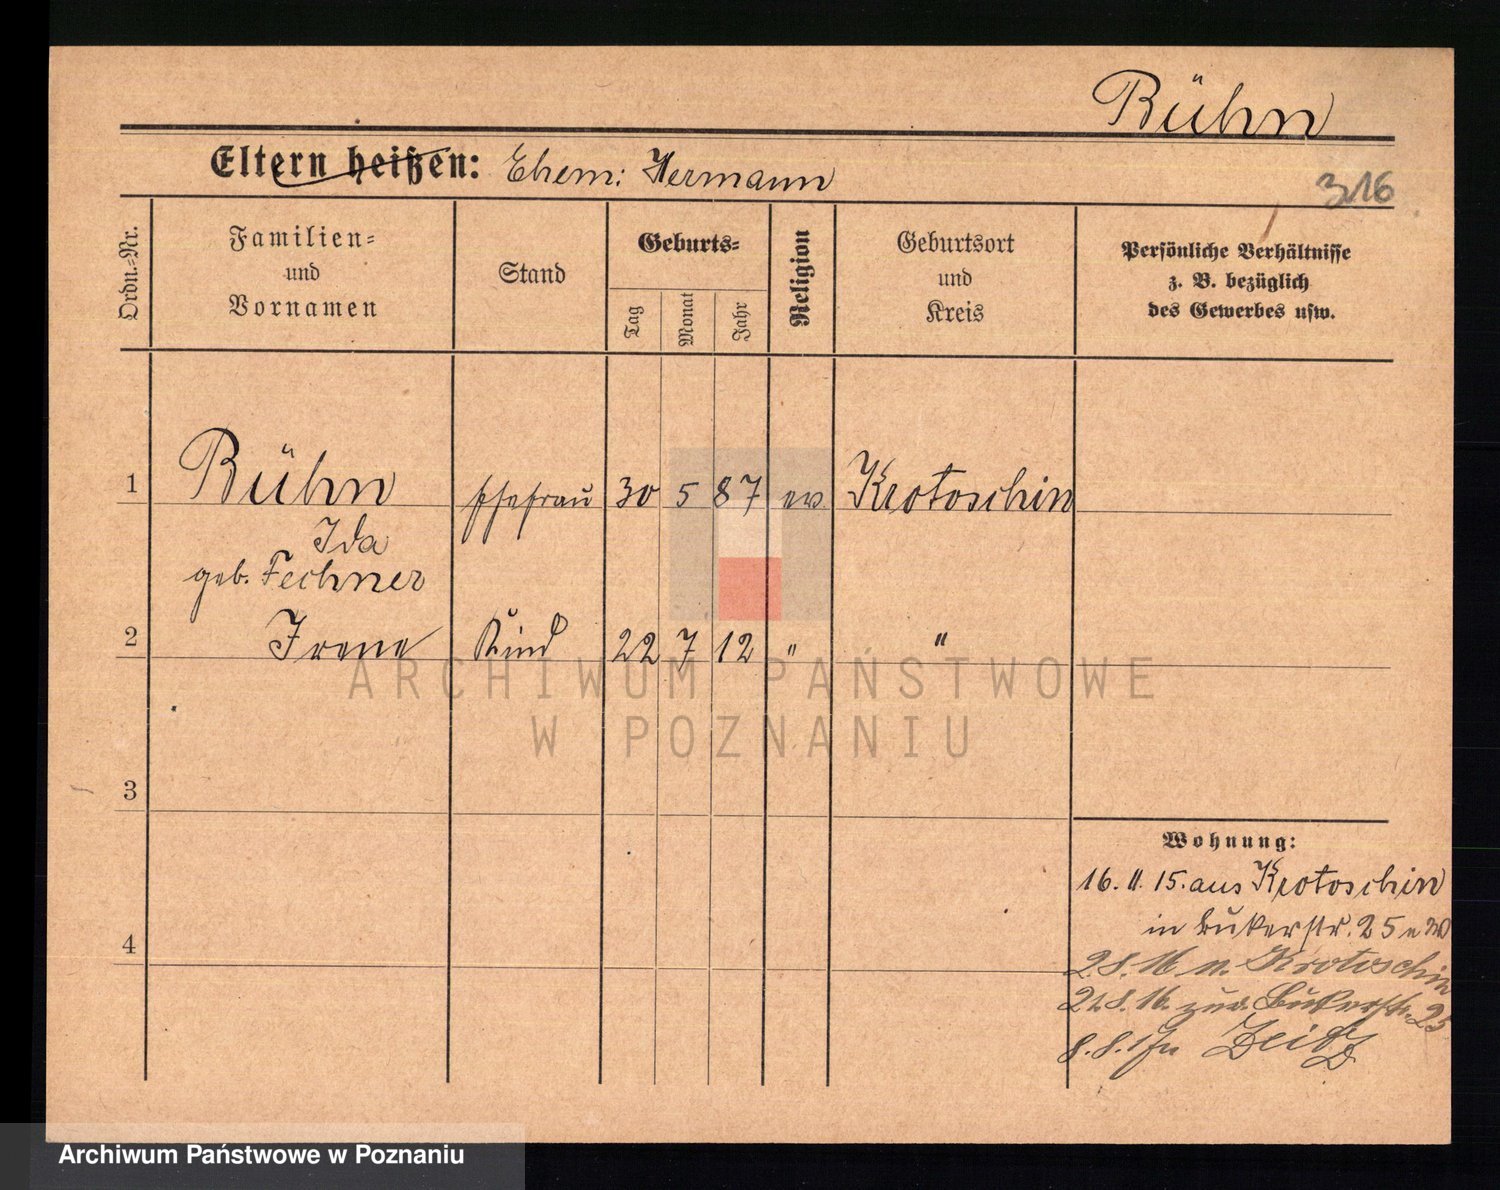 Bühn
Eltern heißen: Ehem: Hermann
316
Ordn.-Nr.
Familien-
und
Vornamen
Stand
Geburts-
Tag
Monat
Jahr
Religion
Geburtsort
und
Kreis
Persönliche Verhältnisse
z. B. bezüglich
des Gewerbes usw.
1 Bühn Ehefrau 30 5 87 ev Krotoschin
Ida
geb. Fechner
2 Irene Kind 22 7 12 " "
3
4
Wohnung:
16. 11. 15. aus Krotoschin
in Bukerstr. 25
16 n. Krotoschin
16. zur. Bukerstr. 25
8. 8. Zeitz
ARCHIWUM PAŃSTWOWE
W POZNANIU
Archiwum Państwowe w Poznaniu